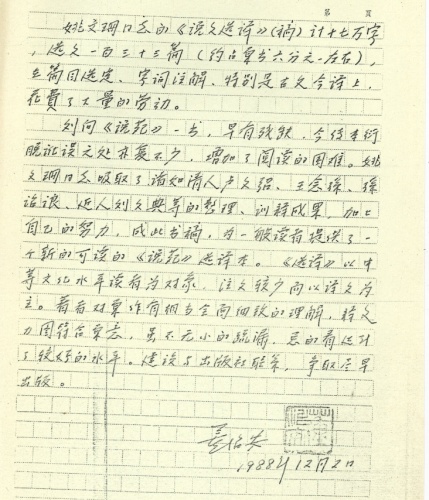 第 页
姚文𬭎同志的《说苑选译》(稿)计十七万字
,选文一百三十三篇(约占全书六分之一左右),
在篇目选定、字词注解、特别是古文今译上,
花费了大量的劳动。
刘向《说苑》一书,早有残缺,今传本衍
脱讹误之处亦复不少,增加了阅读的困难。姚
文 同志吸取了诸如清人卢文弨、王念孙、孙
诒让、近人刘文典等的整理、训释成果,加上
自己的努力,成此书稿,为一般读者提供了一
个新的可读的《说苑》选译本。《选译》以中
等文化水平读者为对象,注文较少而以译文为
主。著者对原作有相当全面细致的理解,释文
力图符合原意,虽不无小的疏漏,总的看达到
了较好的水平。建议与出版社联系,争取尽早
出版。
1988年12月2日